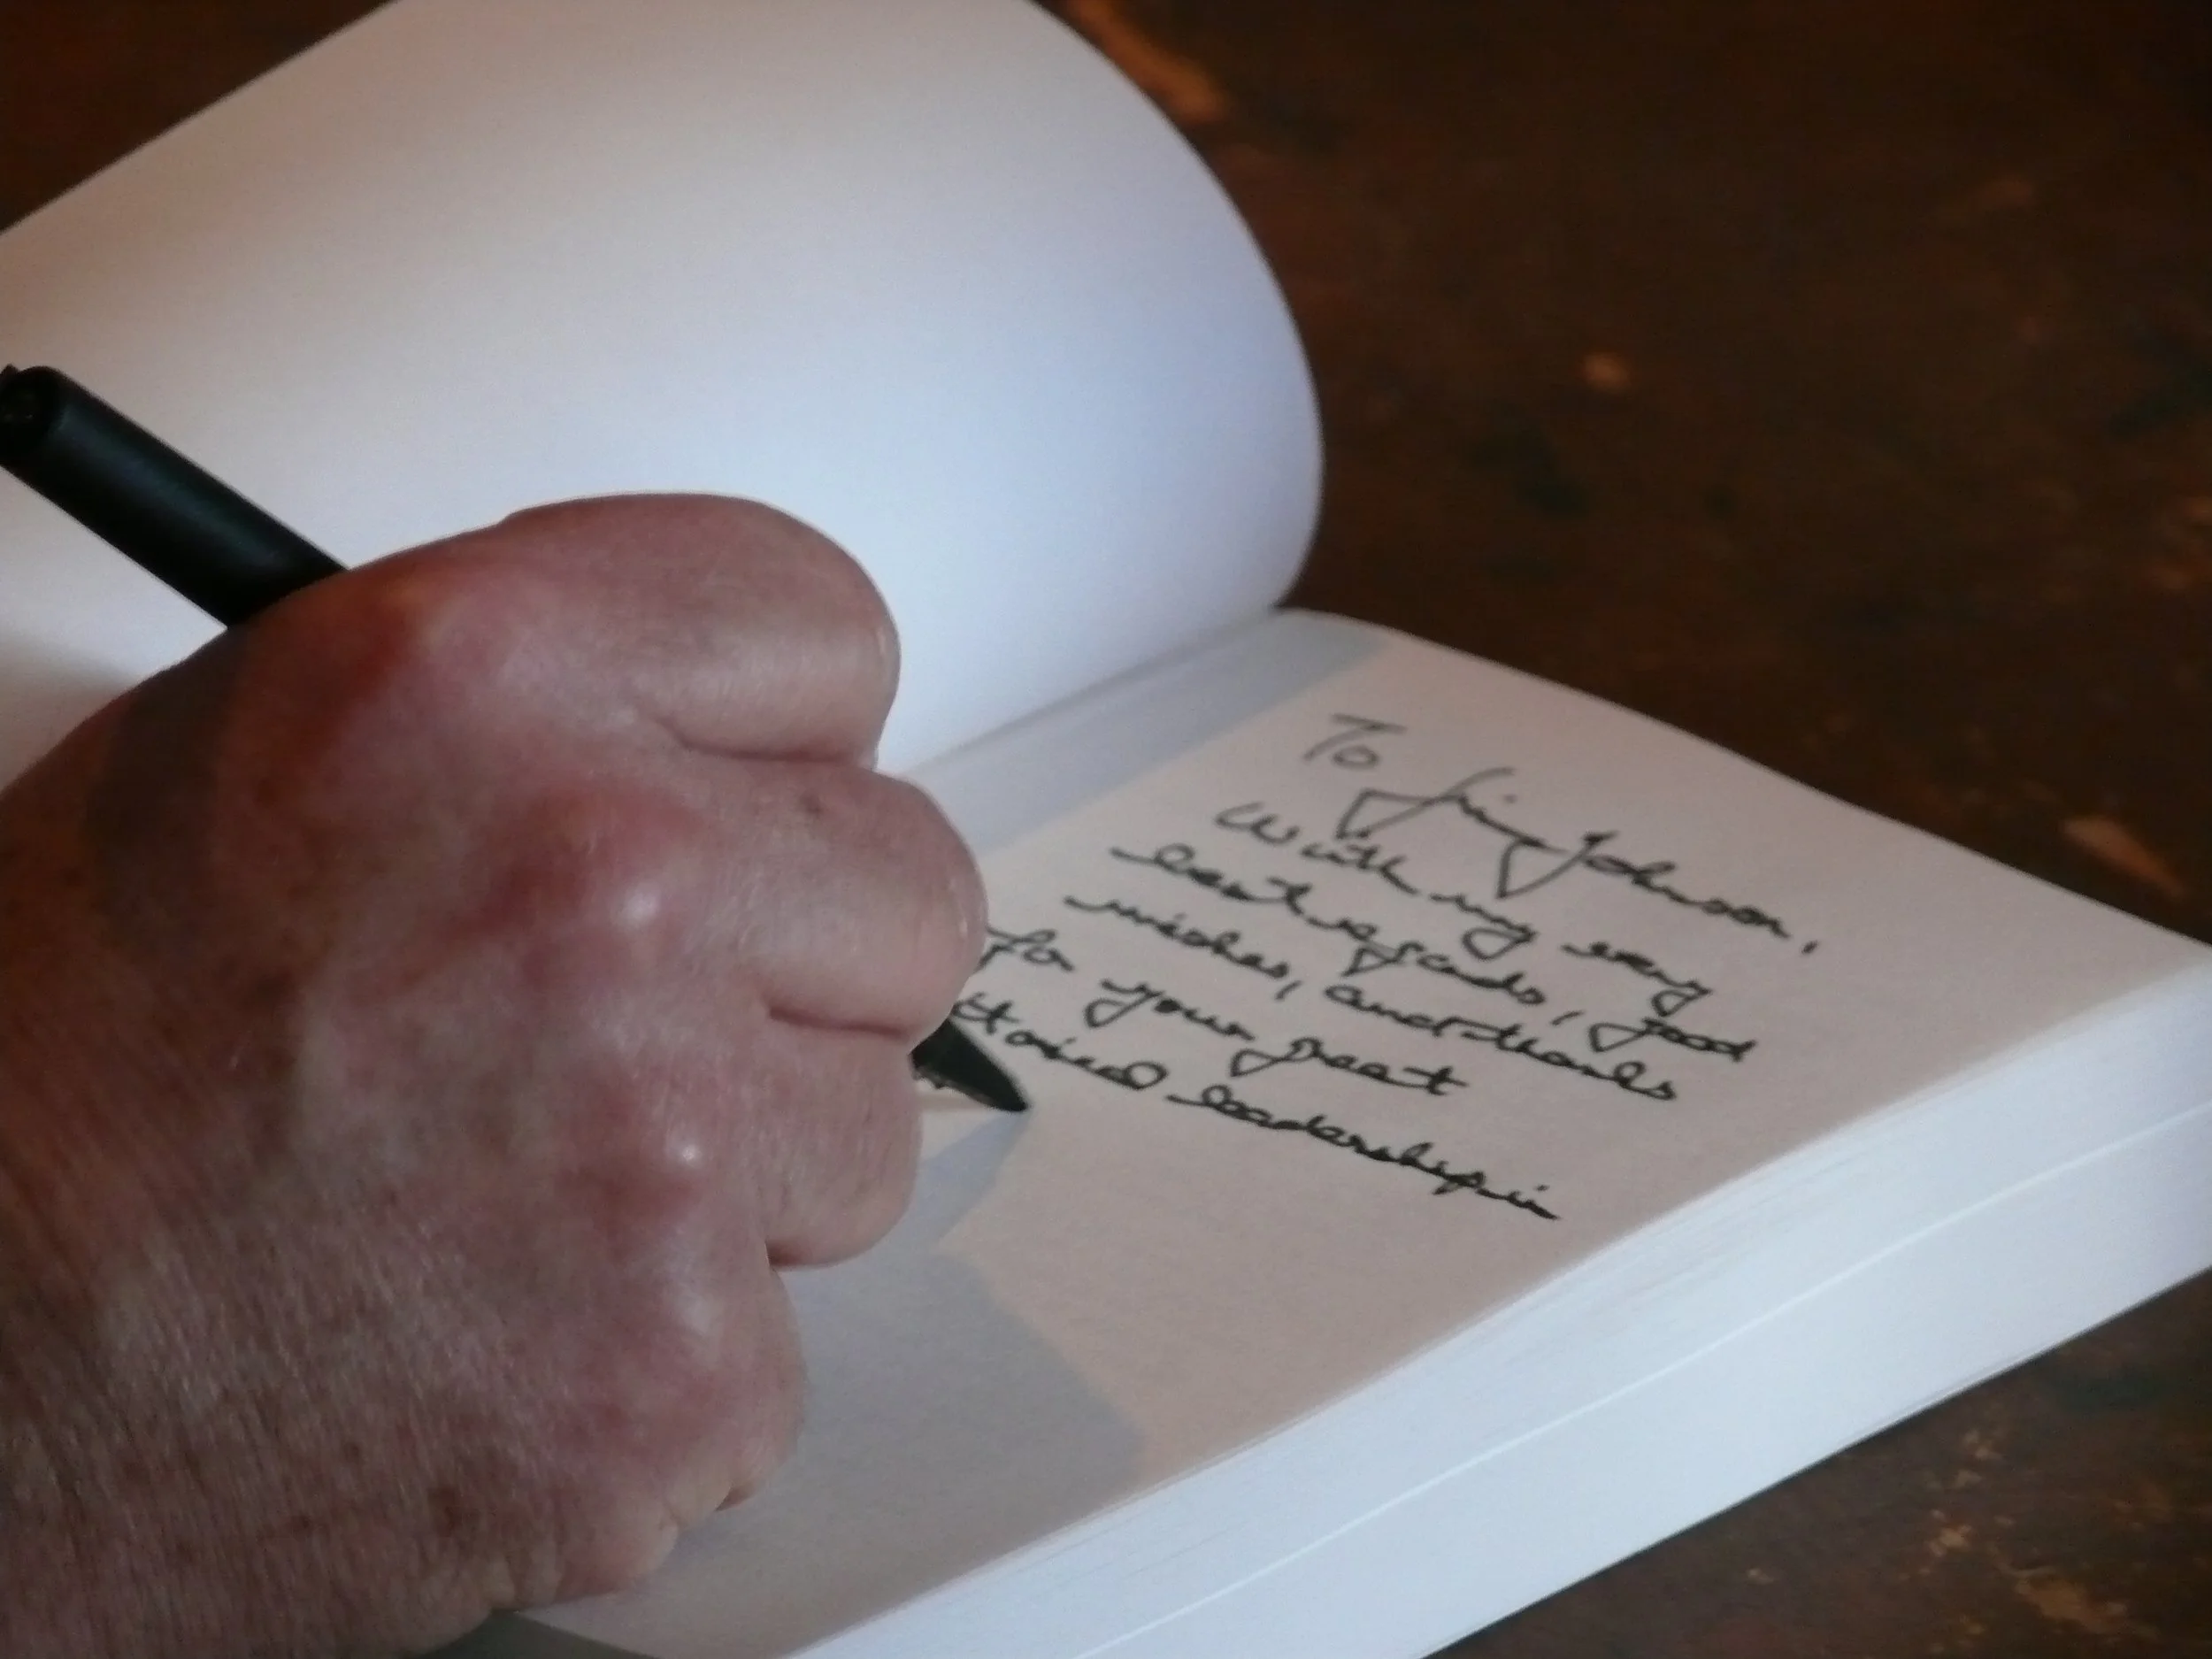 To Jim Johnson,
With my very
best regards, good
wishes, and thanks
for your great
leadership in